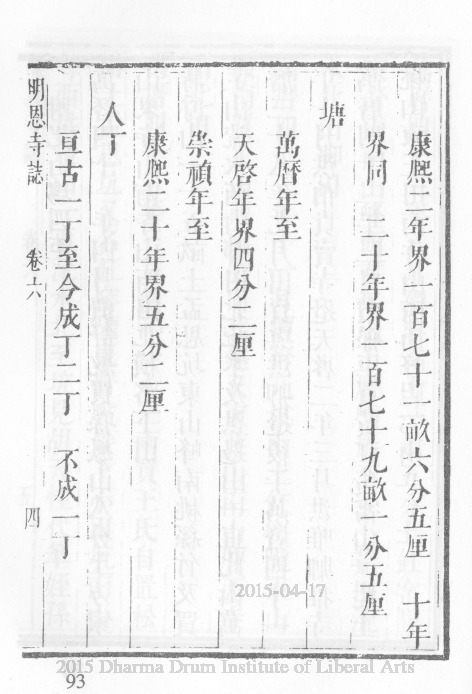 康熙二年界一百七十一畝六分五厘　十年
界同　二十年界一百七十九畝一分五厘
塘
萬曆年至
天啓年界四分二厘
崇禎年至
康熙二十年界五分二厘
人丁
亘古一丁至今成丁二丁　不成一丁
明恩寺誌　卷六　四
2015-04-17
2015 Dharma Drum Institute of Liberal Arts
93